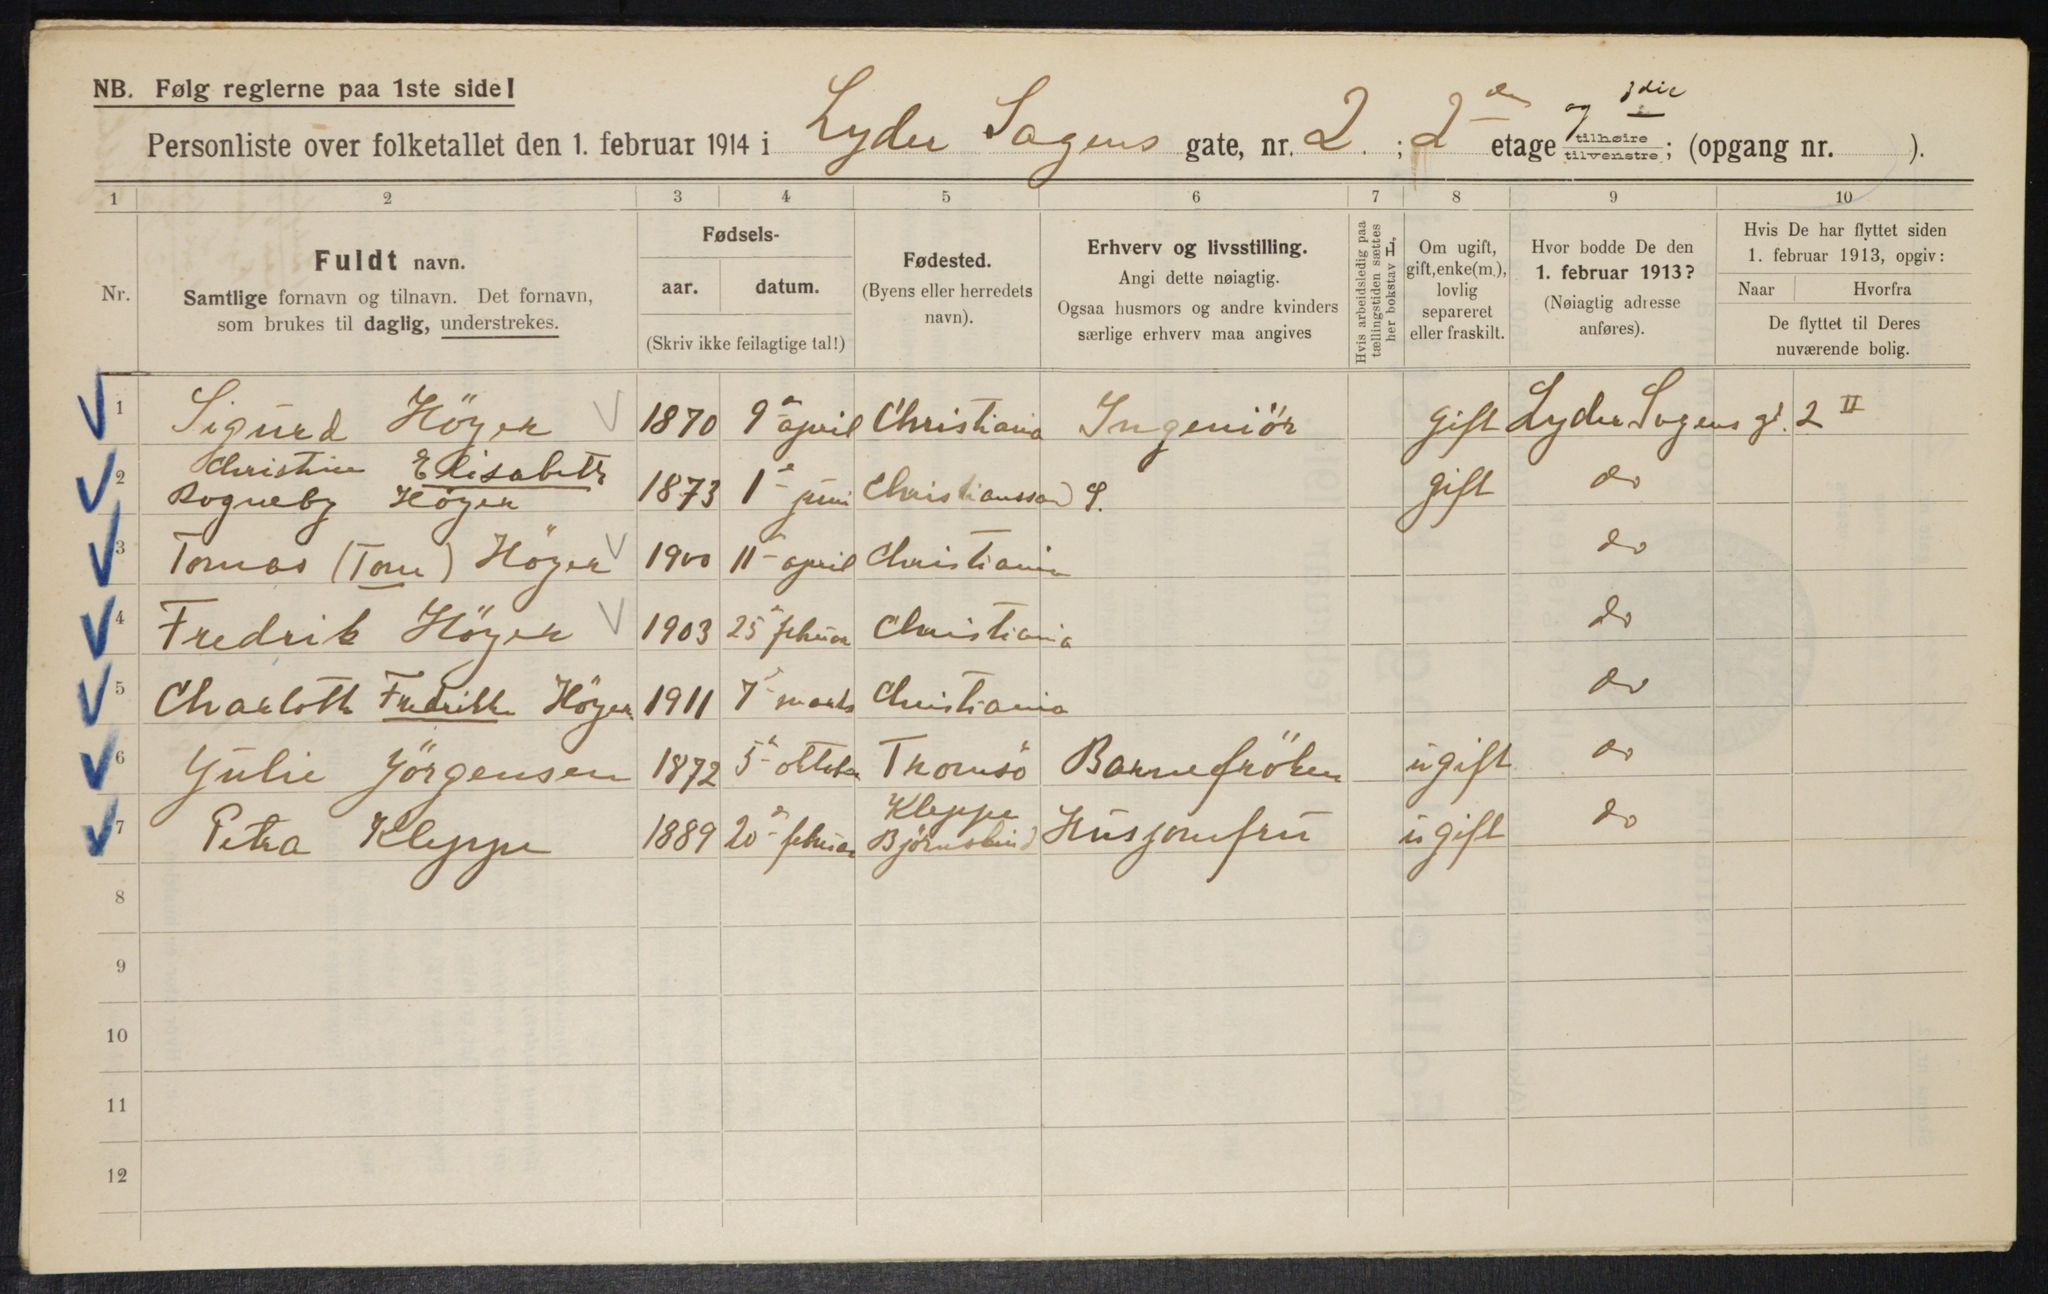 NB. Følg reglerne paa 1ste side!
Personliste over folketallet den 1. februar 1914 i Lyder Sagens gate, nr. 2. ; 2den etage og 3die tilhøire tilvenstre ; (opgang nr. ).
1 2 3 4 5 6 7 8 9 10
Nr.
Fuldt navn.
Samtlige fornavn og tilnavn. Det fornavn,
som brukes til daglig, understrekes.
Fødsels-
aar. datum.
(Skriv ikke feilagtige tal!)
Fødested.
(Byens eller herredets
navn).
Erhverv og livsstilling.
Angi dette nøiagtig.
Ogsaa husmors og andre kvinders
særlige erhverv maa angives
Hvis arbeidsledig paa
tællingstiden sættes
her bokstav L.
Om ugift,
gift, enke(m.),
lovlig
separeret
eller fraskilt.
Hvor bodde De den
1. februar 1913?
(Nøiagtig adresse
anføres).
Hvis De har flyttet siden
1. februar 1913, opgiv:
Naar Hvorfra
De flyttet til Deres
nuværende bolig.
1 Sigurd Höyer 1870 9 april Christiania Ingeniör gift Lyder Sagens gt. 2 II
2 Christine Elisabeth
Rogneby Höyer 1873 1 juni Christianssand gift do
3 Tomas (Tom) Höyer 1900 11 april Christiania do
4 Fredrik Höyer 1903 25 februar Christiania do
5 Charlotte Fredrikke Höyer 1911 7 marts Christiania do
6 Julie Jörgensen 1872 5 oktober Tromsö Barnefröken ugift do
7 Petra Kleppe 1889 20 februar Kleppe
Björnelund Husjomfru ugift do
8
9
10
11
12